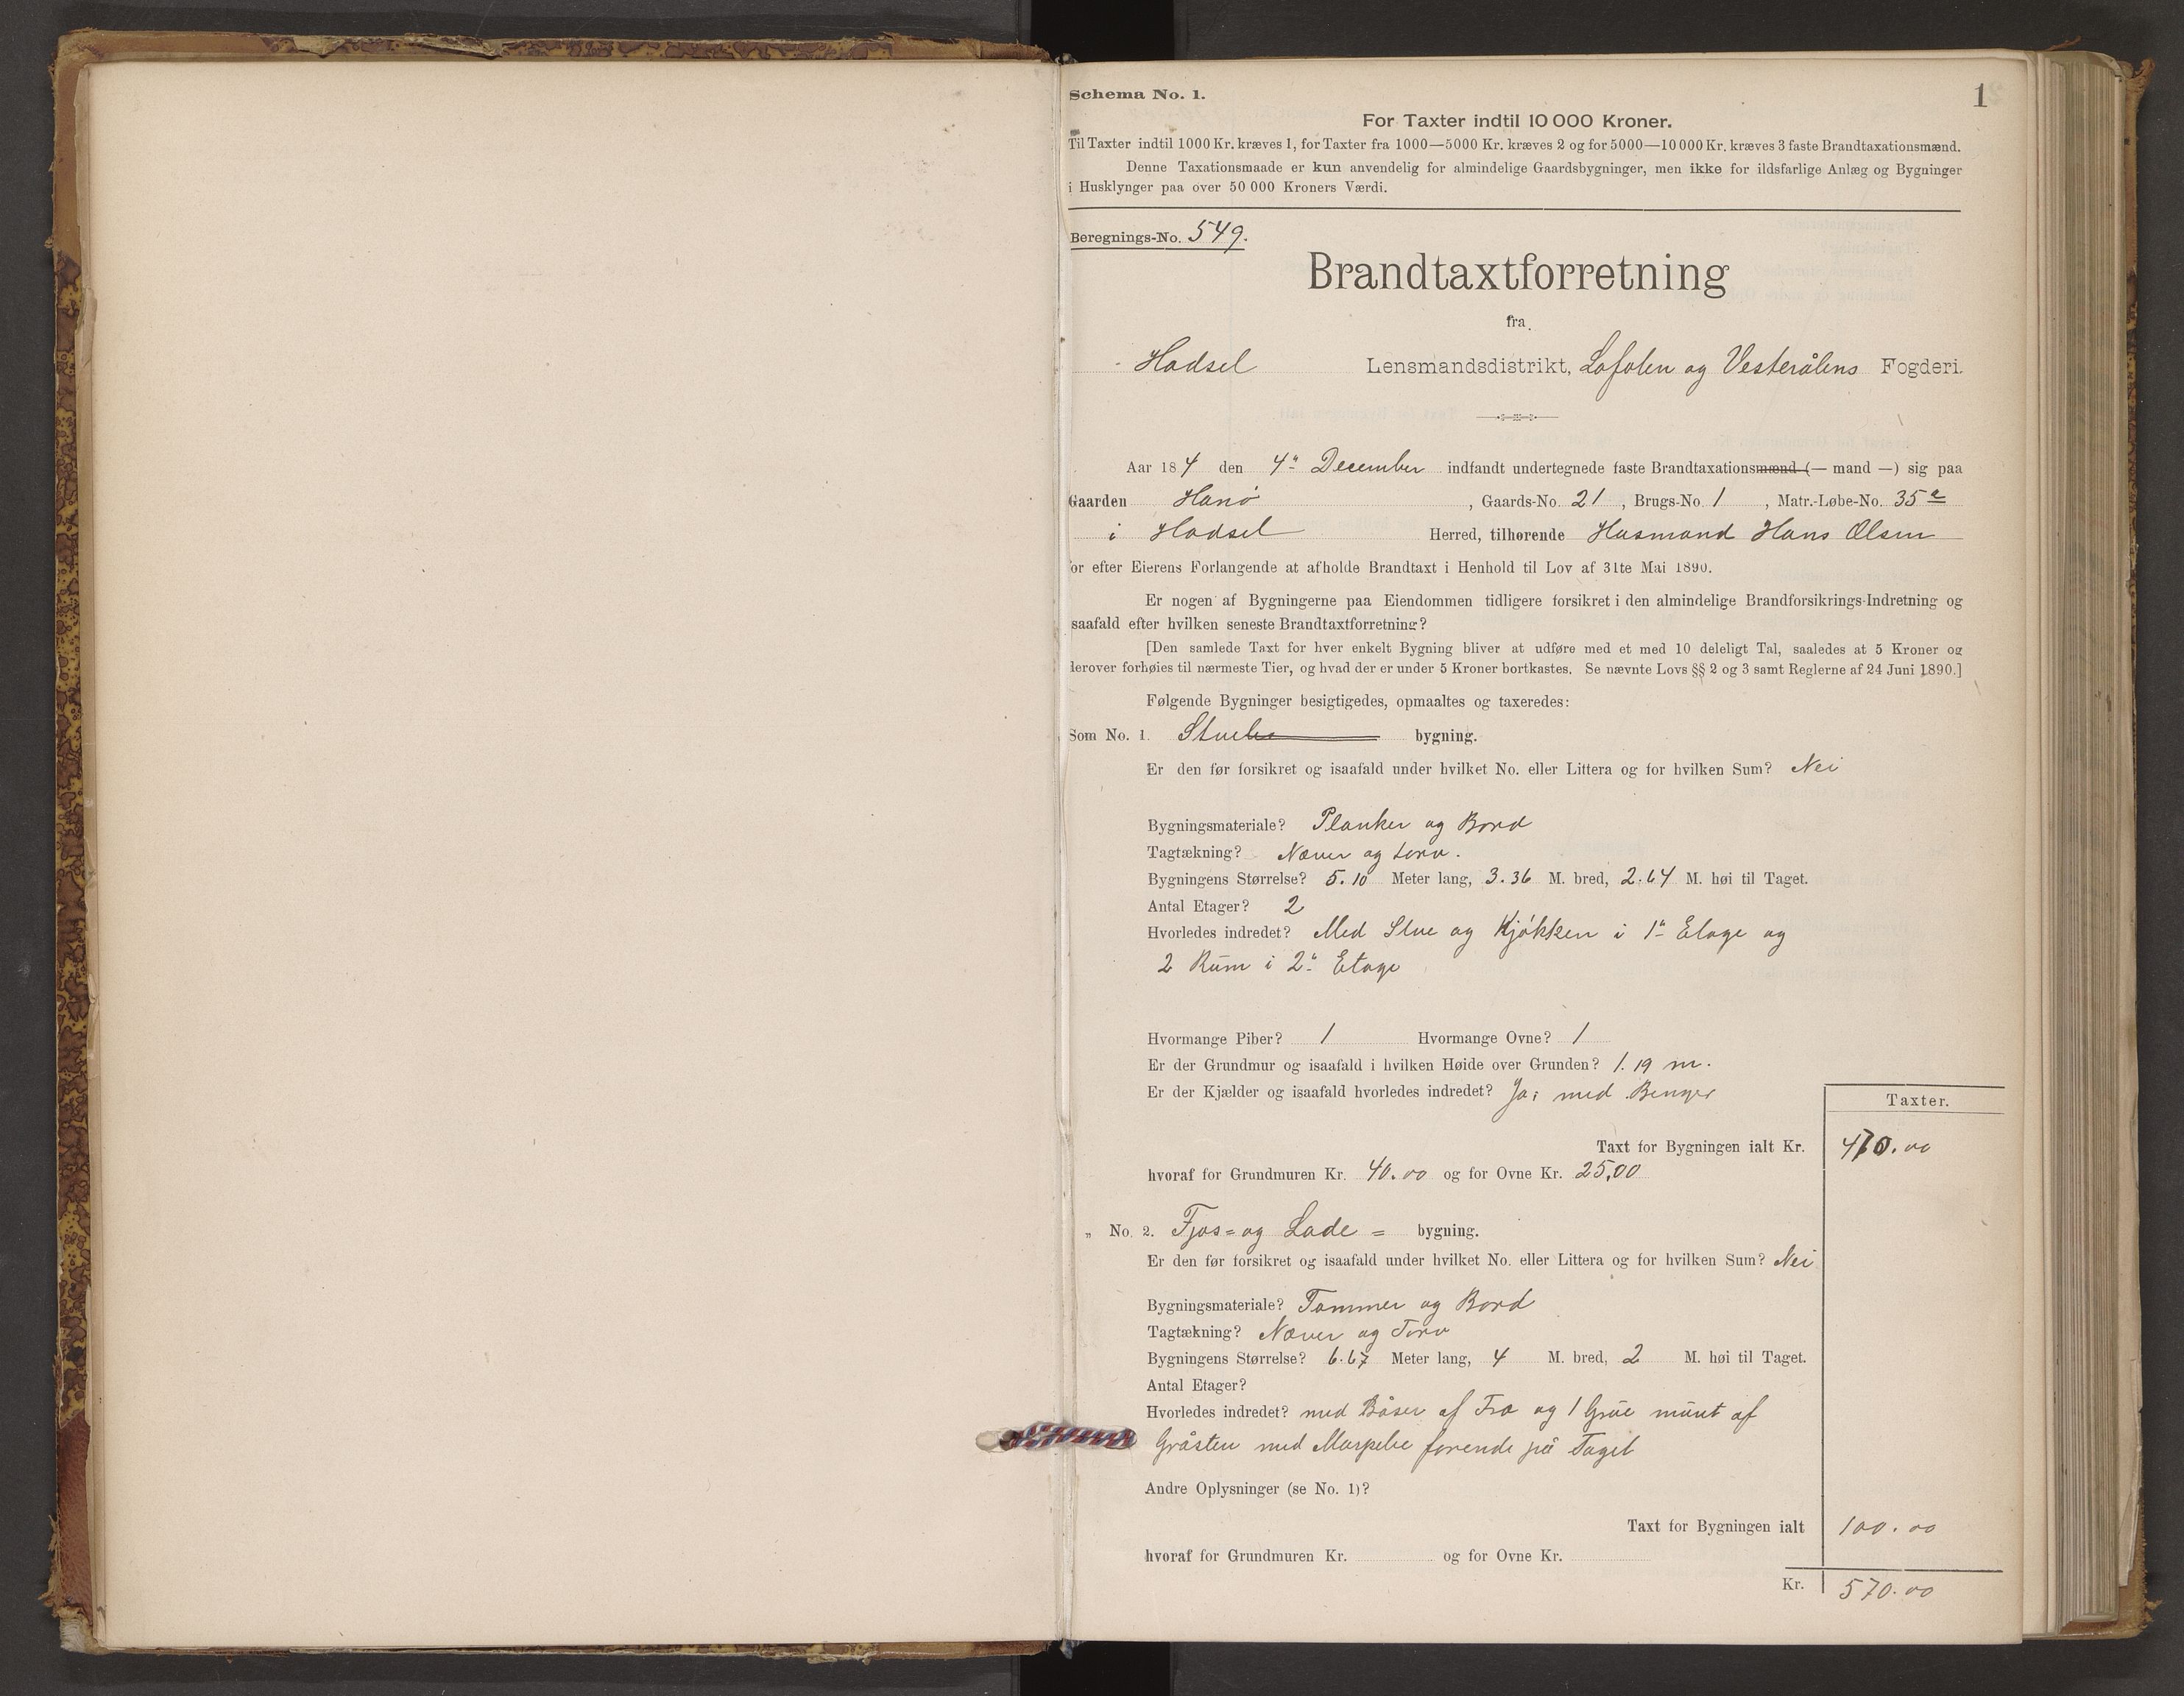 Schema No. 1.
1
For Taxter indtil 10 000 Kroner.
Til Taxter indtil 1000 Kr. kræves 1, for Taxter fra 1000—5000 Kr. kræves 2 og for 5000—10 000 Kr. kræves 3 faste Brandtaxationsmænd.
Denne Taxationsmaade er kun anvendelig for almindelige Gaardsbygninger, men ikke for ildsfarlige Anlæg og Bygninger
i Husklynger paa over 50 000 Kroners Værdi.
Beregnings-No. 549.
Brandtaxtforretning
fra
Hadsel Lensmandsdistrikt, Lofoten og Vesterålens Fogderi.
Aar 184 den 4de December indfandt undertegnede faste Brandtaxationsmænd (— mand —) sig paa
Gaarden Hanø, Gaards-No. 21, Brugs-No. 1, Matr.-Løbe-No. 35a
i Hadsel Herred, tilhørende Husmand Hans Olsen
for efter Eierens Forlangende at afholde Brandtaxt i Henhold til Lov af 31te Mai 1890.
Er nogen af Bygningerne paa Eiendommen tidligere forsikret i den almindelige Brandforsikrings-Indretning og
saafald efter hvilken seneste Brandtaxtforretning?
[Den samlede Taxt for hver enkelt Bygning bliver at udføre med et med 10 deleligt Tal, saaledes at 5 Kroner og
derover forhøies til nærmeste Tier, og hvad der er under 5 Kroner bortkastes. Se nævnte Lovs §§ 2 og 3 samt Reglerne af 24 Juni 1890.]
Følgende Bygninger besigtigedes, opmaaltes og taxeredes:
Som No. 1. Stue bygning.
Er den før forsikret og isaafald under hvilket No. eller Littera og for hvilken Sum? Nei
Bygningsmateriale? Planker og Bord
Tagtækning? Næver og torv.
Bygningens Størrelse? 5.10 Meter lang, 3.36 M. bred, 2.64 M. høi til Taget.
Antal Etager? 2
Hvorledes indredet? Med Stue og Kjøkken i 1ste Etage og
2 Rum i 2den Etage
Hvormange Piber? 1 Hvormange Ovne? 1
Er der Grundmur og isaafald i hvilken Høide over Grunden? 1.19 m.
Er der Kjælder og isaafald hvorledes indredet? Ja; med Binger
Taxter.
Taxt for Bygningen ialt Kr. 470.00
hvoraf for Grundmuren Kr. 40.00 og for Ovne Kr. 25,00
„ No. 2. Fjøs= og Lade = bygning.
Er den før forsikret og isaafald under hvilket No. eller Littera og for hvilken Sum? Nei
Bygningsmateriale? Tømmer og Bord
Tagtækning? Næver og Torv
Bygningens Størrelse? 6.67 Meter lang, 4 M. bred, 2 M. høi til Taget.
Antal Etager?
Hvorledes indredet? med Båser af Træ og 1 Grue muret af
Gråsten med førende på Taget
Andre Oplysninger (se No. 1)?
Taxt for Bygningen ialt 100.00
hvoraf for Grundmuren Kr. og for Ovne Kr.
Kr. 570.00